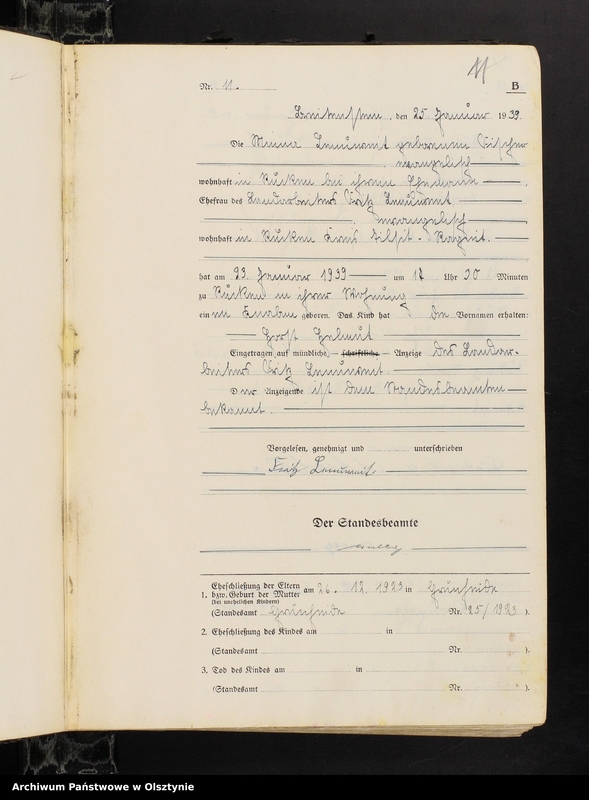 11
Nr. 11. B
Breitenstein, den 25 Januar 1939.
Die Minna geborenen
evangelisch
wohnhaft in Rucken bei ihrem Ehemann
Ehefrau des Landarbeiters Fritz
evangelisch
wohnhaft in Rucken Kreis Tilsit-Ragnit.
hat am 23. Januar 1939 um 17 Uhr 30 Minuten
zu Rucken in ihrer Wohnung
ein en Knaben geboren. Das Kind hat die Vornamen erhalten:
Horst Helmut
Eingetragen auf mündliche, schriftliche Anzeige des Landar-
beiters Fritz
Der Anzeigende ist dem Standesbeamten
bekannt.
Vorgelesen, genehmigt und unterschrieben
Fritz
Der Standesbeamte
Eheschließung der Eltern
1. bzw. Geburt der Mutter am 26. 12. 1923 in Grünheide
(bei unehelichen Kindern)
(Standesamt Grünheide Nr. 25/1923 ).
2. Eheschließung des Kindes am in
(Standesamt Nr. ).
3. Tod des Kindes am in
(Standesamt Nr. ).
Archiwum Państwowe w Olsztynie